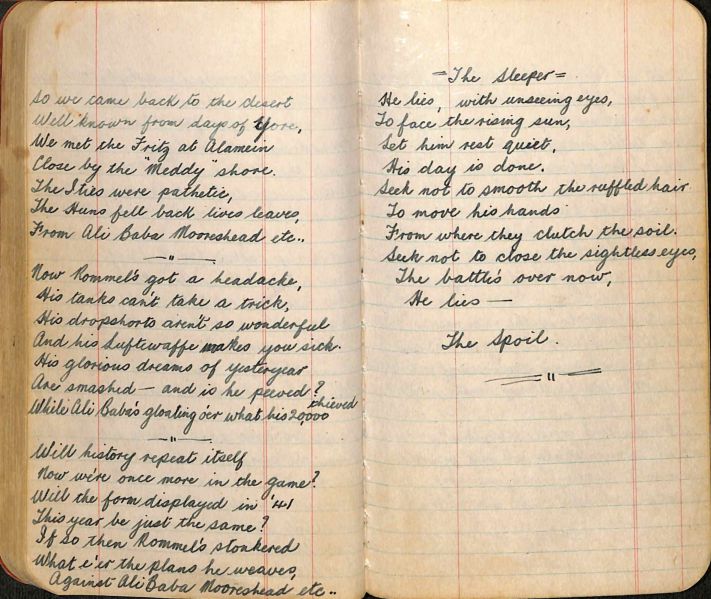 So we came back to the desert
Well known from days of yore,
We met the Fritz at Alamein
Close by the "Meddy" shore.
The Ities were pathetic,
The Huns fell back lives leaves,
From Ali Baba Mooreshead etc..
Now Rommel's got a headache,
His tanks can't take a trick,
His dropshorts aren't so wonderful
And his Luftewaffe makes you sick.
His glorious dreams of yesteryear
Are smashed — and is he peeved?
While Ali Baba's gloating o'er what his 20,000 thieved
Will history repeat itself
Now we're once more in the game?
Will the form displayed in '41
This year be just the same?
If so then Rommel's stonkered
What e'er the plans he weaves,
Against Ali Baba Mooreshead etc..
= The Sleeper =
He lies, with unseeing eyes,
To face the rising sun,
Let him rest quiet,
His day is done.
Seek not to smooth the ruffled hair
To move his hands
From where they clutch the soil.
Seek not to close the sightless eyes,
The battle's over now,
He lies —
The Spoil.